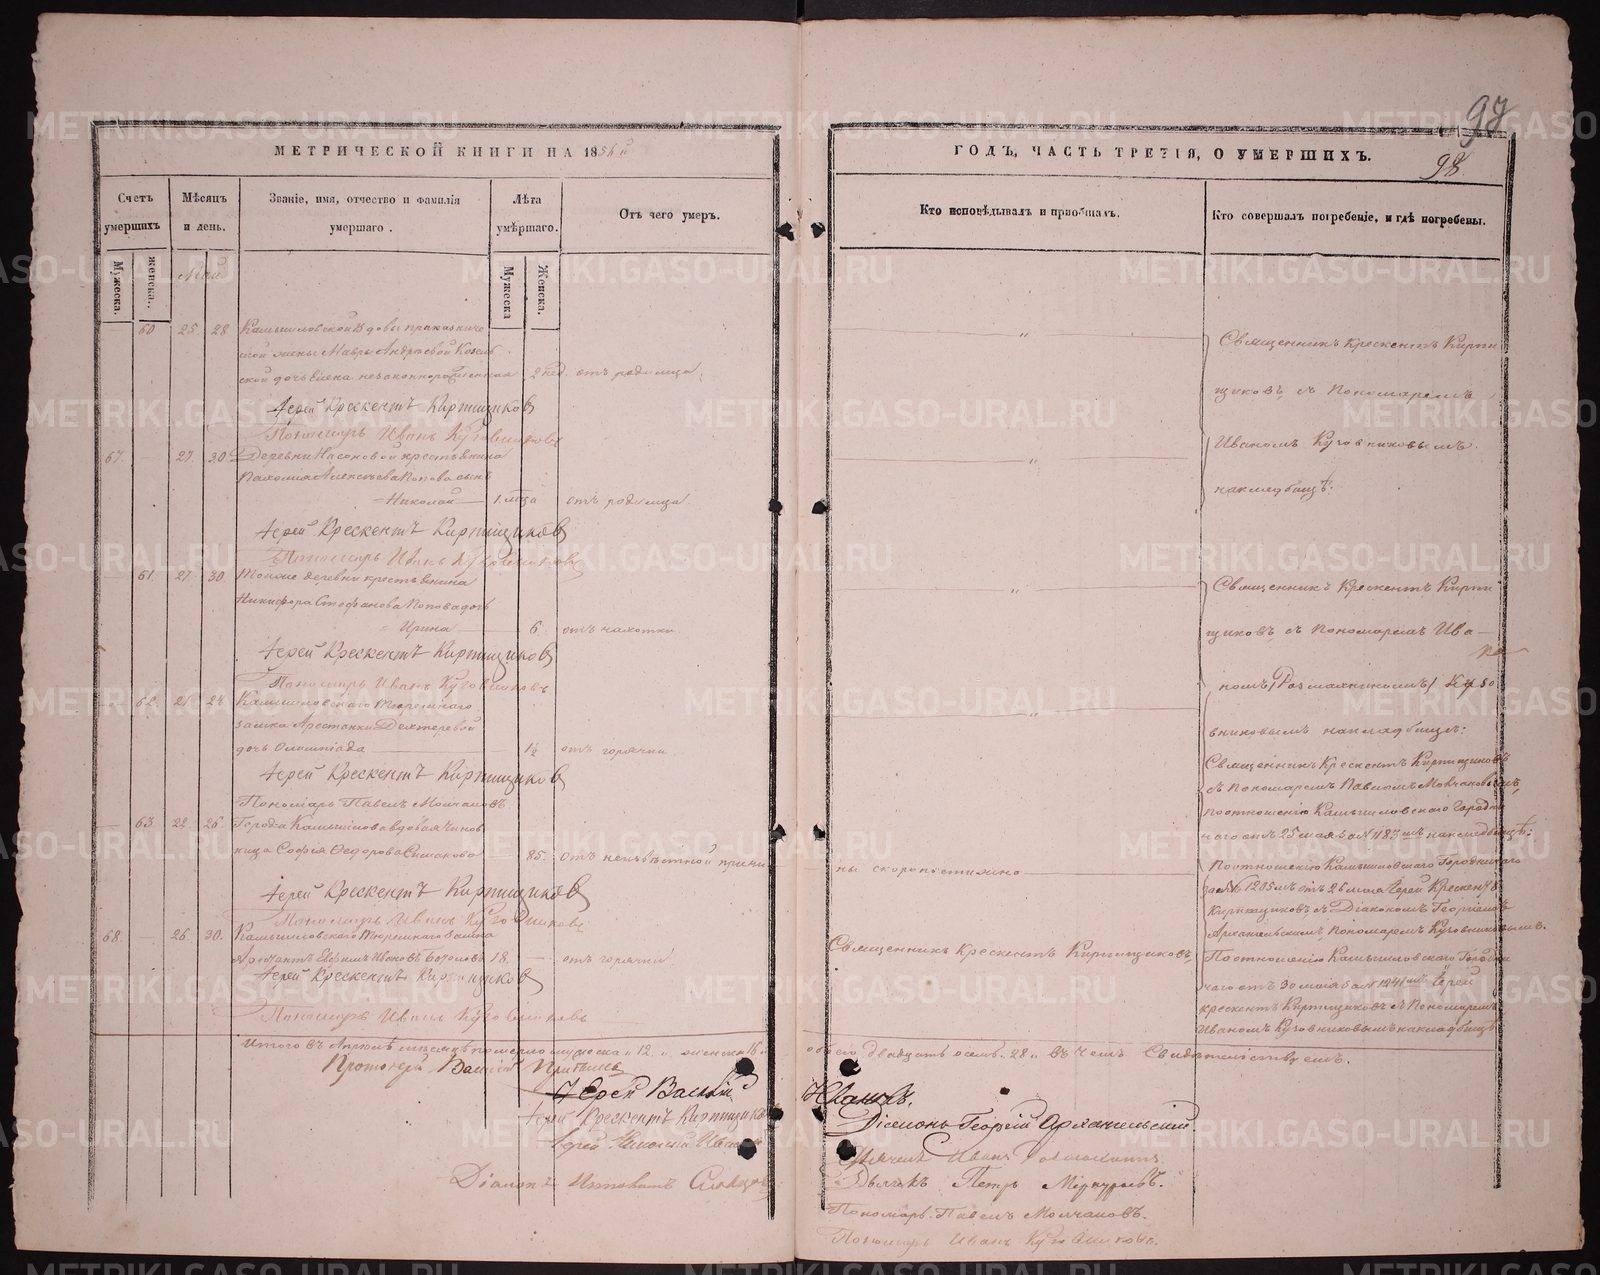 97
МЕТРИЧЕСКОЙ КНИГИ НА 1856й
Счетъ умершихъ
Мѣсяцъ и день.
Званіе, имя, отчество и фамилія умершаго.
Лѣта умѣршаго.
Отъ чего умеръ.
Мужеска.
женска.
Май
Мужеска
Женска.
60 25 28 Камышловской вдовы приказниче
ской жены Мавры Андреевой
ской дочь Елена незаконнорожденная 2 нед. отъ родимца.
Іерей Крескентъ Кирпищиковъ
Пономарь Иванъ Кузовниковъ
67. 27. 30 Деревни Насоновой крестьянина
Пахомія Алексѣева Попова сынъ
Николай 1. мца отъ родимца
Іерей Крескентъ Кирпищиковъ
Пономарь Иванъ Кузовниковъ
61. 27. 30 Тойже деревни крестьянина
Никифора Стефанова Попова дочь
Ирина 6 отъ чахотки
Іерей Крескентъ Кирпищиковъ
Пономарь Иванъ Кузовниковъ
62. 21 24 Камышловскаго Тюремнаго
замка Арестанки Дехтеревой
дочь Олимпіада 1½ отъ горячки
Іерей Крескентъ Кирпищиковъ
Пономарь Павелъ Молчановъ
63. 22. 26. Города Камышлова вдовая чинов
ница Софія Ѳедорова Симакова 85. отъ неизвѣстной причи
Іерей Крескентъ Кирпищиковъ
Пономарь Иванъ Кузовниковъ
68. 26. 30. Камышловскаго Тюремнаго замка
Арестантъ Ефимъ Ивановъ 18. отъ горячки
Іерей Крескентъ Кирпищиковъ
Пономарь Иванъ Кузовниковъ
Итого въ мѣсяцѣ померло мужеска 12. женска 16.
Протоіерей Василій
Іерей Василій
Іерей Крескентъ Кирпищиковъ
Іерей Николай
Діаконъ Ипполитъ
ГОДЪ, ЧАСТЬ ТРЕТІЯ, О УМЕРШИХЪ.
98
Кто исповѣдывалъ и пріобщалъ.
Кто совершалъ погребеніе, и гдѣ погребены.
Священникъ Крескентъ Кирпи
щиковъ, съ Пономаремъ
Иваномъ Кузовниковымъ
на кладбищѣ.
Священникъ Крескентъ Кирпи
щиковъ съ Пономаремъ Ива
номъ Кузо
вниковымъ на кладбищѣ:
Священникъ Крескентъ Кирпищиковъ
съ Пономаремъ Павломъ Молчановымъ,
по отношенію Камышловскаго Городни
чаго отъ 25 мая за N 1183 мъ на кладбищѣ:
ны скоропостижно
По отношенію Камышловскаго Городничаго
за № 1205 мъ отъ 26 мая Іерей Крескентъ
Кирпищиковъ съ Діакономъ Георгіемъ
Архангельскимъ, Пономаремъ Кузовниковымъ.
Священникъ Крескентъ Кирпищиковъ,
По отношенію Камышловскаго Городни
чаго отъ 30 мая за N 1241 мъ Іерей
Крескентъ Кирпищиковъ съ Пономаремъ
Иваномъ Кузовниковымъ на кладбищѣ
обоего двадцать осемь. 28. въ чемъ Свидѣтельствуемъ.
Діаконъ Георгій Архангельскій
Дьячекъ Иванъ
Дьячекъ Петръ Меркурьевъ.
Пономарь Павелъ Молчановъ.
Пономарь Иванъ Кузовниковъ.
METRIKI.GASO-URAL.RU